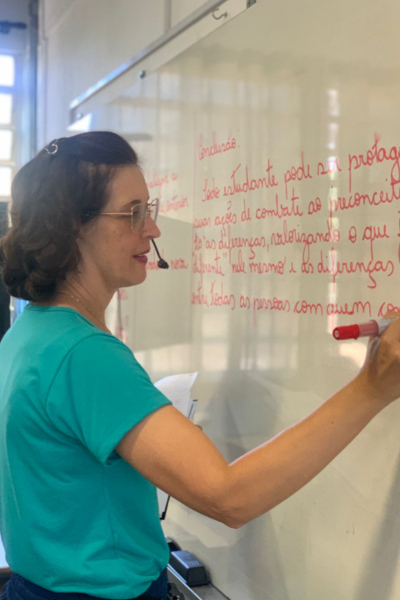 Conclusão.
Todo estudante pode ser protag
suas ações de combate ao preconceit
as diferenças, valorizando o que
diferente" nele mesmo e as diferenças
entre todas as pessoas com quem co